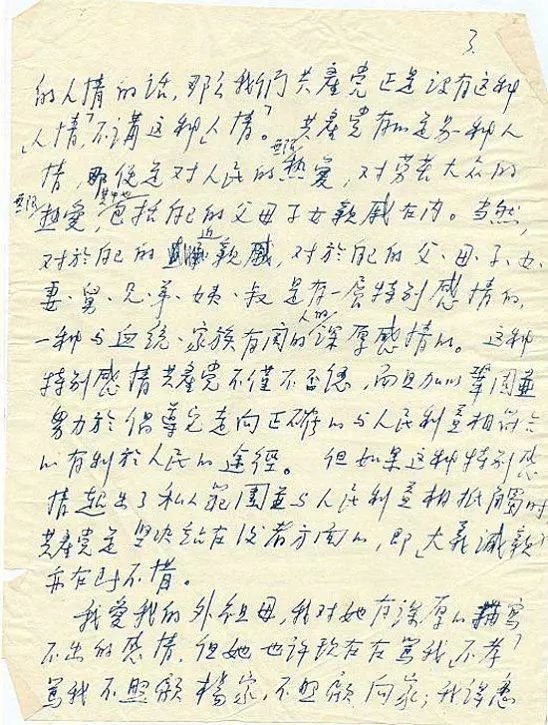 3.
的人情的话，那么我們共產党正是没有这种
「人情」不讲这种「人情」。共產党有的是另一种人
情，那便是对人民的無限热爱，对劳苦大众的
無限热爱，其中也包括自己的父母子女親戚在内。当然，
对於自己的近親戚，对於自己的父、母、子、女、
妻、舅、兄、弟、姨、叔是有一層特别感情的，
一种与血統、家族有関的人的深厚感情的。这种
特别感情共產党不僅不否認，而且加以鞏固並
努力於倡導它走向正確的与人民利益相符合
的有利於人民的途徑。但如果这种特别感
情超出了私人範围並与人民利益相抵触时
共產党是坚决站在後者方面的，即「大義滅親」
亦在所不惜。
我愛我的外祖母，我对她有深厚的描寫
不出的感情，但她也许现在在罵我「不孝」
罵我不照顧楊家，不照顧向家；我得悉